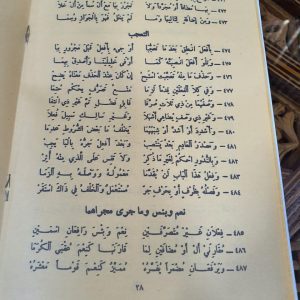 ٤٧٢ – بِهَا مُضَافًا أَوْ مُجَرَّدًا وَلَا تَجْرُرْ بِهَا مَعْ أَلْ سُمًا مِنْ أَلْ خَلَا
٤٧٣ – وَمِنْ إِضَافَةٍ لِتَالِيهَا وَمَا لَمْ يَخْلُ فَهْوَ بِالْجَوَازِ وُسِمَا
التعجب
٤٧٤ – بِأَفْعَلَ انْطِقْ بَعْدَ مَا تَعَجُّبَا أَوْ جِىءْ بِأَفْعِلْ قَبْلَ مَجْرُورٍ بِبَا
٤٧٥ – وَتِلْوَ أَفْعَلَ انْصِبَنَّهُ كَمَا أَوْفَى خَلِيلَيْنَا وَأَصْدِقْ بِهِمَا
٤٧٦ – وَحَذْفَ مَا مِنْهُ تَعَجَّبْتَ اسْتَبِحْ إِنْ كَانَ عِنْدَ الْحَذْفِ مَعْنَاهُ يَضِحْ
٤٧٧ – وَفِي كِلَا الْفِعْلَيْنِ قِدْمًا لَزِمَا مَنْعُ تَصَرُّفٍ بِحُكْمٍ حُتِمَا
٤٧٨ – وَصُغْهُمَا مِنْ ذِي ثَلَاثٍ صُرِّفَا قَابِلِ فَضْلٍ تَمَّ غَيْرِ ذِي انْتِفَا
٤٧٩ – وَغَيْرِ ذِي وَصْفٍ يُضَاهِي أَشْهَلَا وَغَيْرِ سَالِكٍ سَبِيلَ فُعِلَا
٤٨٠ – وَأَشْدِدَ أَوْ أَشَدَّ أَوْ شِبْهُهُمَا يَخْلُفُ مَا بَعْضَ الشُّرُوطِ عَدِمَا
٤٨١ – وَمَصْدَرُ الْعَادِمِ بَعْدُ يَنْتَصِبْ وَبَعْدَ أَفْعِلْ جَرُّهُ بِالْبَا يَجِبْ
٤٨٢ – وَبِالنُّدُورِ احْكُمْ لِغَيْرِ مَا ذُكِرْ وَلَا تَقِسْ عَلَى الَّذِي مِنْهُ أُثِرْ
٤٨٣ – وَفِعْلُ هَذَا الْبَابِ لَنْ يُقَدَّمَا مَعْمُولُهُ وَوَصْلَهُ بِهِ الْزَمَا
٤٨٤ – وَفَصْلُهُ بِظَرْفٍ أَوْ بِحَرْفِ جَرْ مُسْتَعْمَلٌ وَالْخُلْفُ فِي ذَاكَ اسْتَقَرْ
نعم وبئس وما جرى مجراهما
٤٨٥ – فِعْلَانِ غَيْرُ مُتَصَرِّفَيْنِ نِعْمَ وَبِئْسَ رَافِعَانِ اسْمَيْنِ
٤٨٦ – مُقَارِنَيْ أَلْ أَوْ مُضَافَيْنِ لِمَا قَارَنَهَا كَنِعْمَ عُقْبَى الْكُرَمَا
٤٨٧ – وَيَرْفَعَانِ مُضْمَرًا يُفَسِّرُهْ مُمَيِّزٌ كَنِعْمَ قَوْمًا مَعْشَرُهْ
٢٨